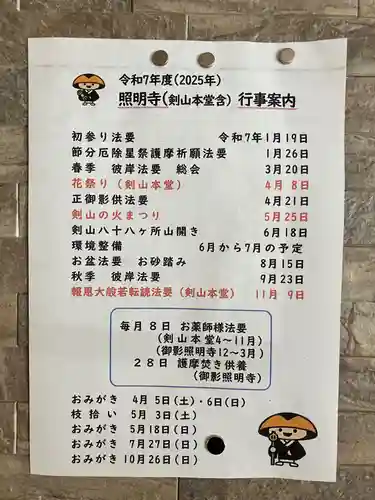 令和7年度(2025年)
照明寺(剣山本堂含) 行事案内
初参り法要 令和7年1月19日
節分厄除星祭護摩祈願法要 1月26日
春季 彼岸法要 総会 3月20日
花祭り(剣山本堂) 4月 8日
正御影供法要 4月21日
剣山の火まつり 5月25日
剣山八十八ヶ所山開き 6月18日
環境整備 6月から7月の予定
お盆法要 お砂踏み 8月15日
秋季 彼岸法要 9月23日
報恩大般若転読法要(剣山本堂) 11月 9日
毎月8日 お薬師様法要
(剣山本堂4~11月)
(御影照明寺12~3月)
28日 護摩焚き供養
(御影照明寺)
おみがき 4月 5日(土)・6日(日)
枝拾い 5月 3日(土)
おみがき 5月18日(日)
おみがき 7月27日(日)
おみがき 10月26日(日)